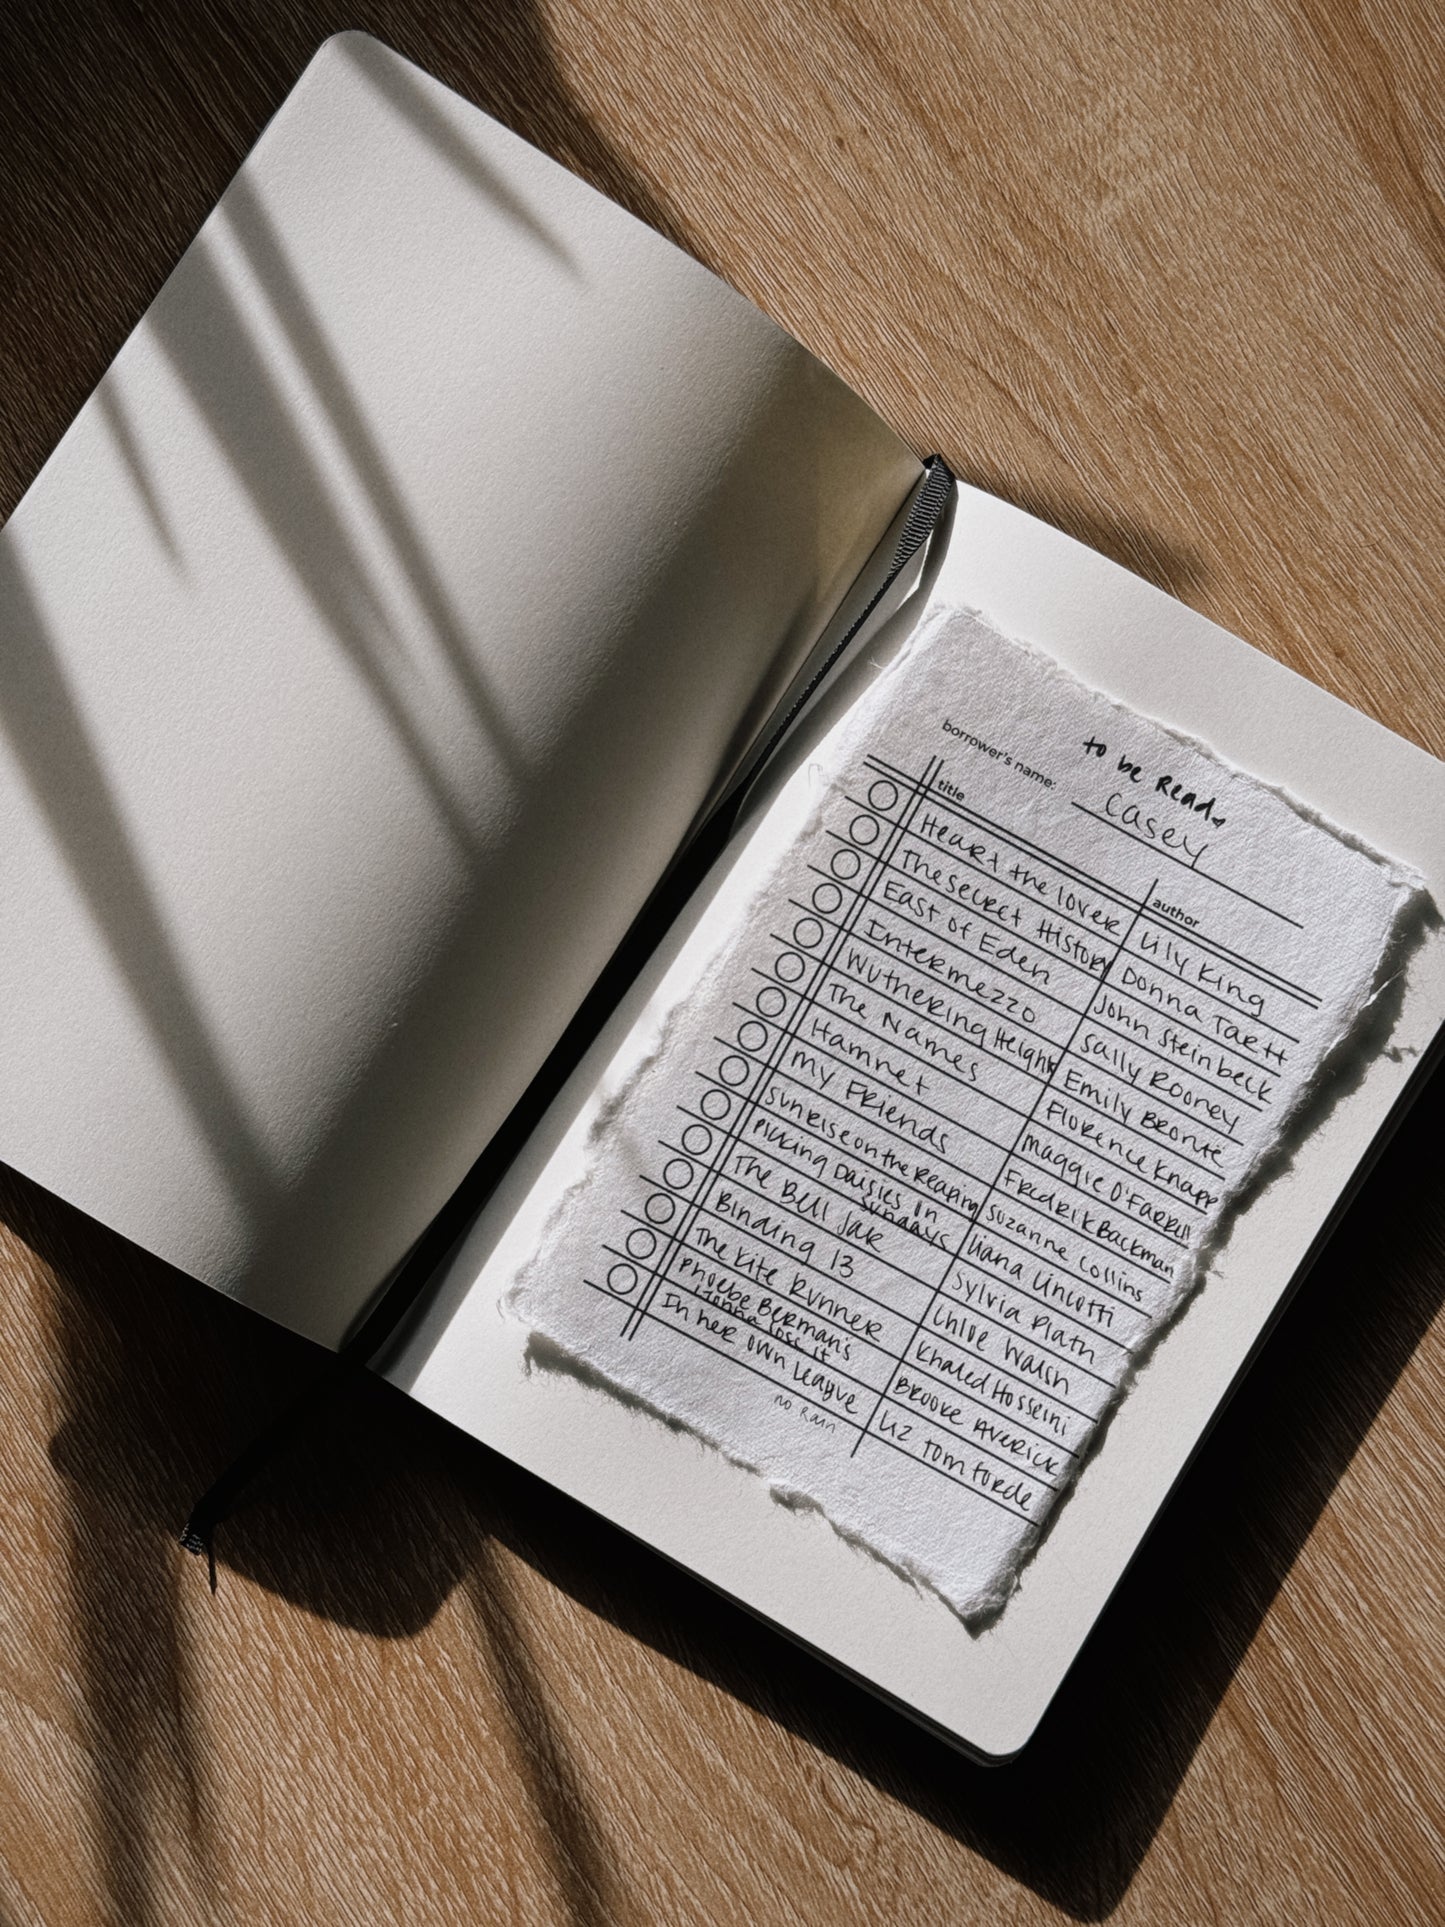 to be Read
borrower's name: Casey
title author
Heart the lover Lily King
The Secret History Donna Tartt
East of Eden John Steinbeck
Intermezzo Sally Rooney
Wuthering Heights Emily Brontë
The Names Florence Knapp
Hamnet Maggie O'Farrell
My Friends Fredrik Backman
Sunrise on the Reaping Suzanne Collins
Picking Daisies on Sundays Liana Cincotti
The Bell Jar Sylvia Plath
Binding 13 Chloe Walsh
The Kite Runner Khaled Hosseini
Phoebe Berman's gonna lose it Brooke Averick
In her own League Liz Tomforde
no Rain